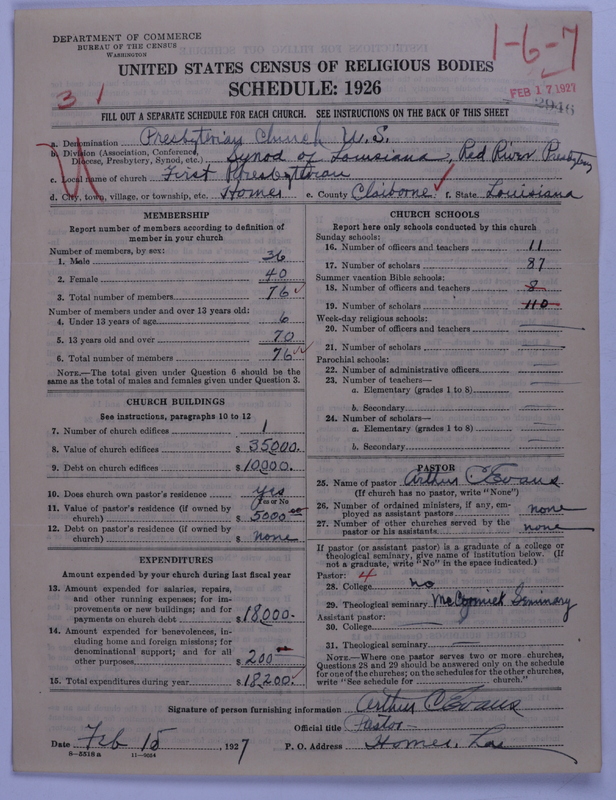 DEPARTMENT OF COMMERCE
BUREAU OF THE CENSUS
WASHINGTON
1-6-7
FEB 17 1927
UNITED STATES CENSUS OF RELIGIOUS BODIES
SCHEDULE: 1926
3 1
FILL OUT A SEPARATE SCHEDULE FOR EACH CHURCH. SEE INSTRUCTIONS ON THE BACK OF THIS SHEET
a. Denomination Presbyterian Church U.S.
b. Division (Association, Conference, Diocese, Presbytery, Synod, etc.) Synod of Louisiana, Red River Presbytery
c. Local name of church First Presbyterian
d. City, town, village, or township, etc. Homer e. County Claiborne f. State Louisiana
MEMBERSHIP
Report number of members according to definition of
member in your church
Number of members, by sex:
1. Male 36
2. Female 40
3. Total number of members 76
Number of members under and over 13 years old:
4. Under 13 years of age 6
5. 13 years old and over 70
6. Total number of members 76
NOTE.—The total given under Question 6 should be
same as the total of males and females given under Question 3.
CHURCH BUILDINGS
See instructions, paragraphs 10 to 12
7. Number of church edifices 1
8. Value of church edifices $ 35000.
9. Debt on church edifices $ 10000.
10. Does church own pastor's residence yes
Yes or No
11. Value of pastor's residence (if owned by
church) $ 5000 00
12. Debt on pastor's residence (if owned by
church) $ None
EXPENDITURES
Amount expended by your church during last fiscal year
13. Amount expended for salaries, repairs,
and other running expenses; for im-
provements or new buildings; and for
payments on church debt $ 18,000.
14. Amount expended for benevolences, in-
cluding home and foreign missions; for
denominational support; and for all
other purposes $ 200 00
15. Total expenditures during year $ 18200.
CHURCH SCHOOLS
Report here only schools conducted by this church
Sunday schools:
16. Number of officers and teachers 11
17. Number of scholars 87
Summer vacation Bible schools:
18. Number of officers and teachers 8
19. Number of scholars 110
Week-day religious schools:
20. Number of officers and teachers
21. Number of scholars
Parochial schools:
22. Number of administrative officers
23. Number of teachers—
a. Elementary (grades 1 to 8)
b. Secondary
24. Number of scholars—
a. Elementary (grades 1 to 8)
b. Secondary
PASTOR
25. Name of pastor Arthur C Evans
(If church has no pastor, write "None")
26. Number of ordained ministers, if any, em-
ployed as assistant pastors none
27. Number of other churches served by the
pastor or his assistants none
If pastor (or assistant pastor) is a graduate of a college or
theological seminary, give name of institution below. (If
not a graduate, write "No" in the space indicated.)
Pastor: 4
28. College no
29. Theological seminary McCormick Seminary
Assistant pastor:
30. College
31. Theological seminary
NOTE.—Where one pastor serves two or more churches,
Questions 28 and 29 should be answered only on the schedule
for one of the churches; on the schedules for the other churches,
write "See schedule for church."
Signature of person furnishing information Arthur C Evans
Official title Pastor
Date Feb 15, 1927 P. O. Address Homer, La
8—5518 a 11—9024